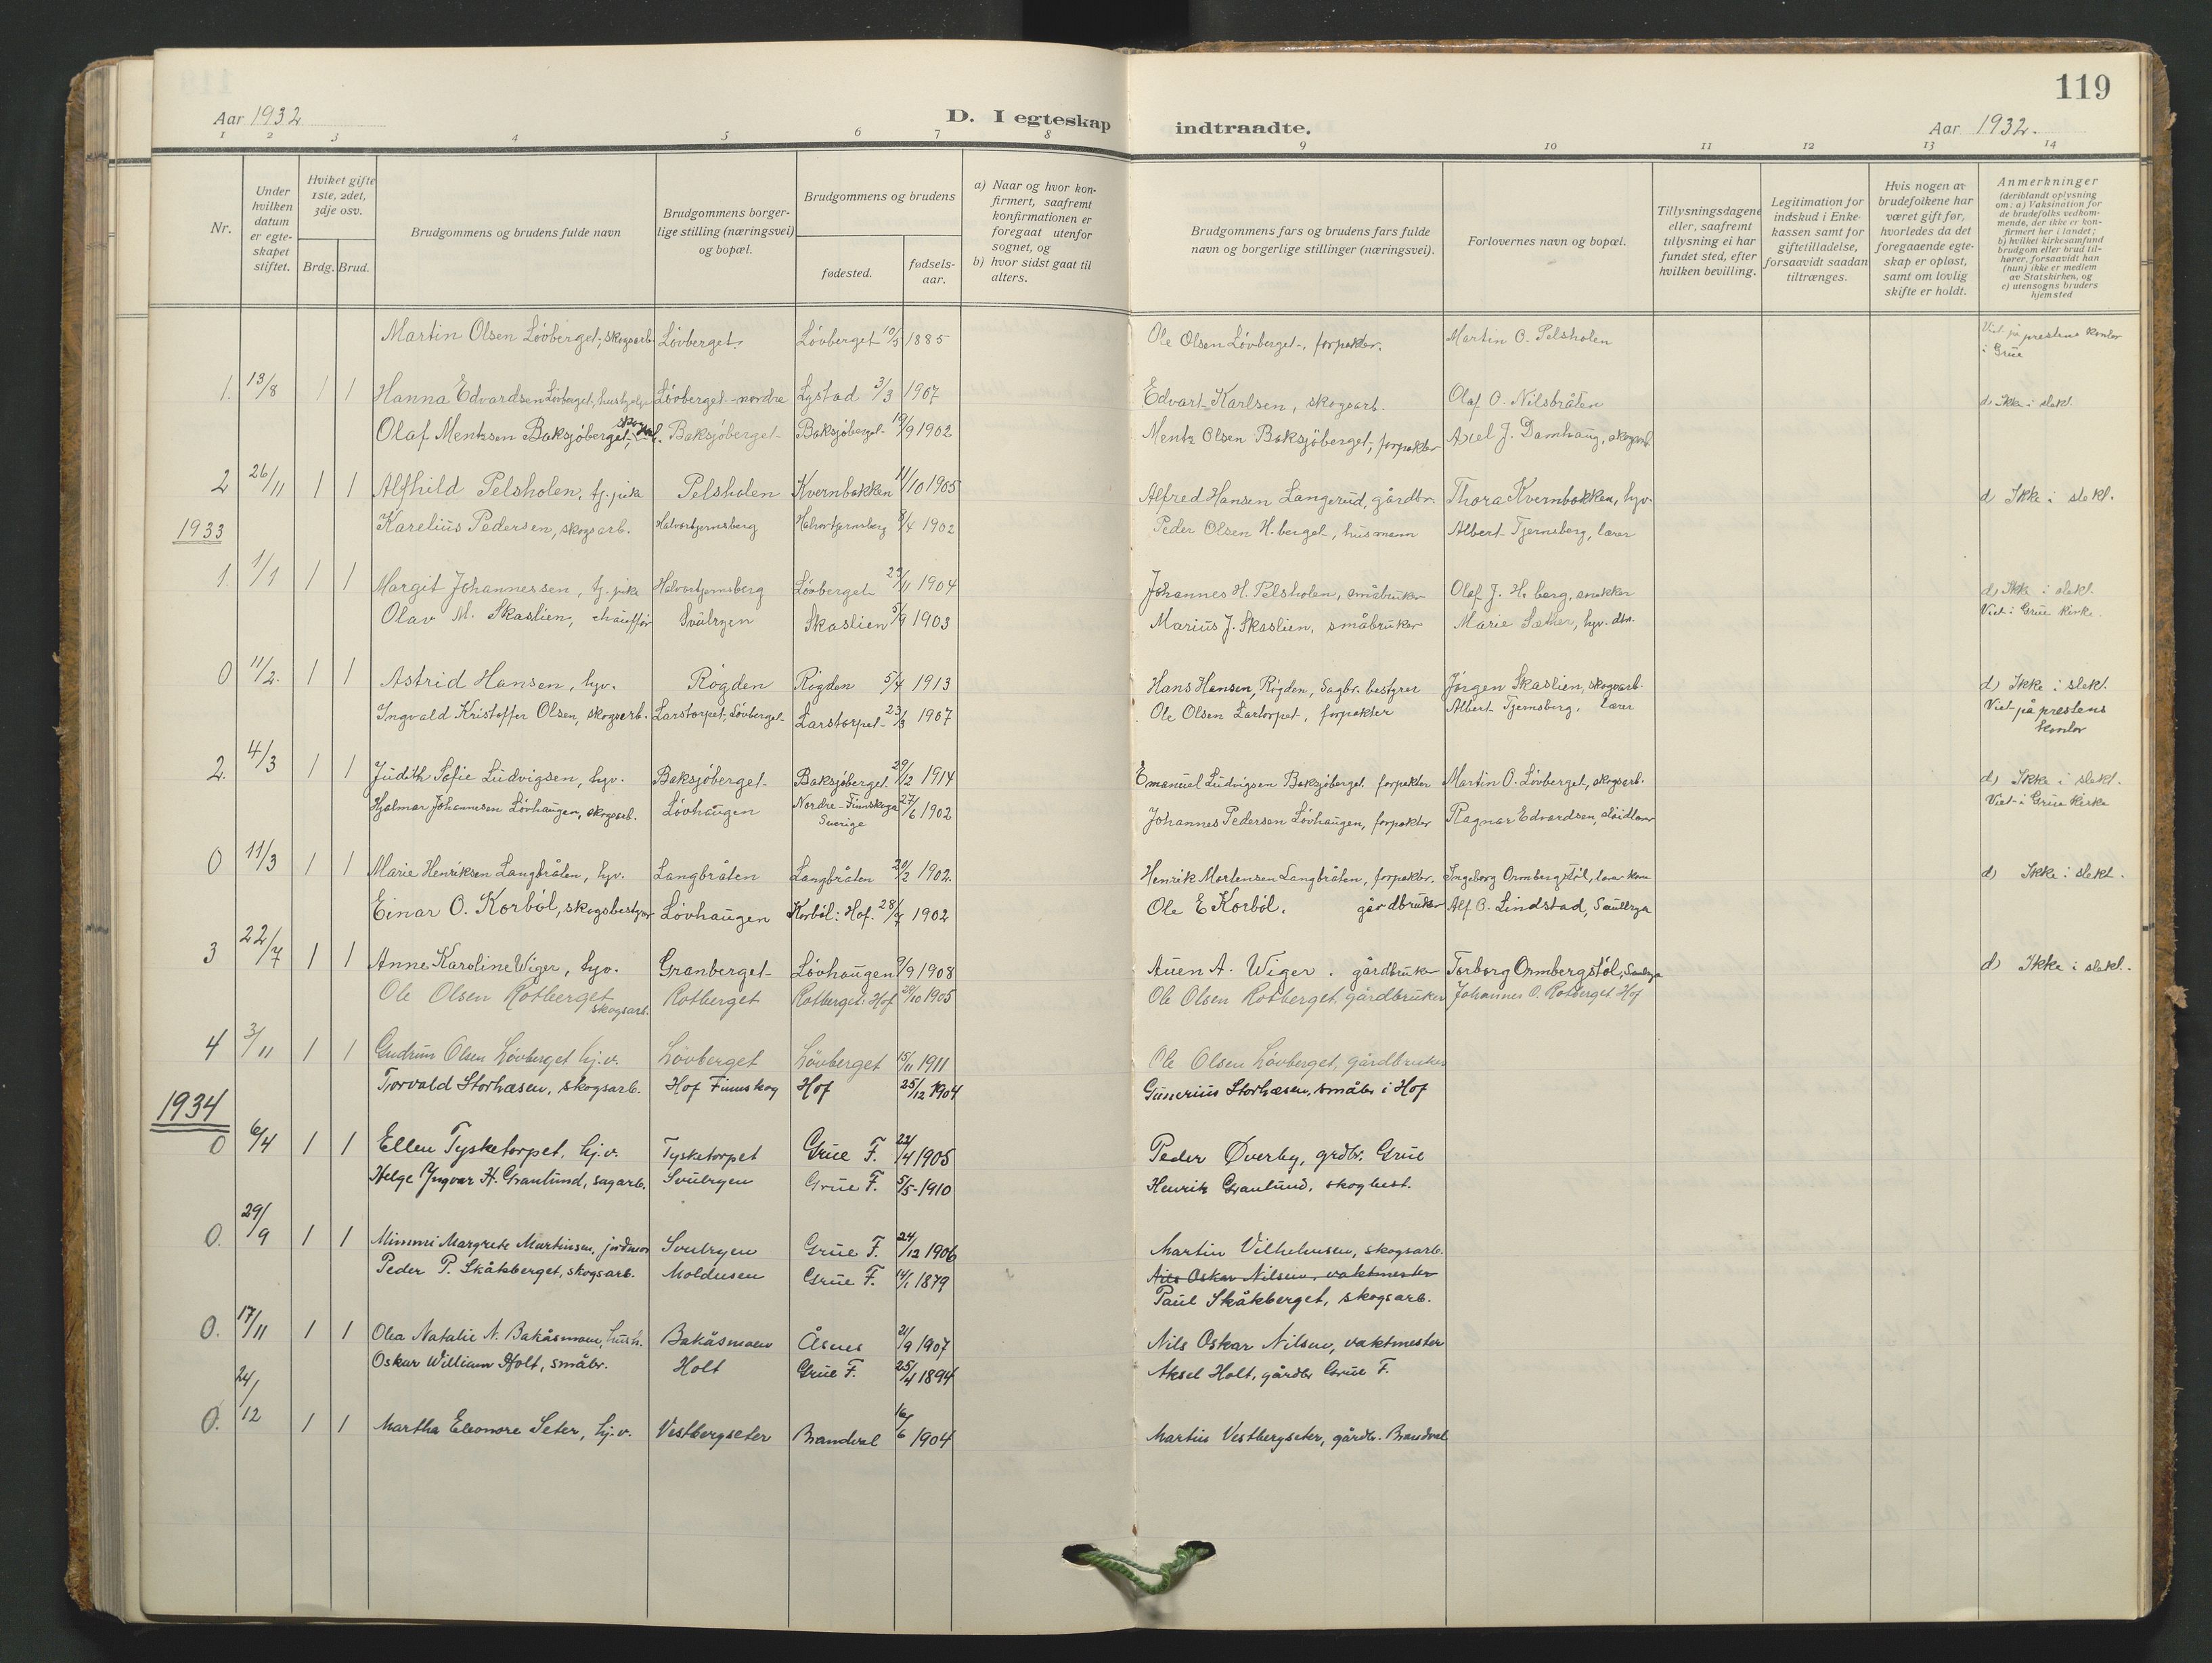 119
Aar 1932
D. I egteskap indtraadte.
Aar 1932.
1 2 3 4 5 6 7 8 9 10 11 12 13 14
Nr.
Under hvilken datum er egteskapet stiftet.
Hvilket gifte 1ste, 2det, 3dje osv.
Brdg. Brud.
Brudgommens og brudens fulde navn
Brudgommens borgerlige stilling (næringsvei) og bopæl.
Brudgommens og brudens
fødested.
fødselsaar.
a) Naar og hvor konfirmert, saafremt konfirmationen er foregaat utenfor sognet, og
b) hvor sidst gaat til alters.
Brudgommens fars og brudens fars fulde navn og borgerlige stillinger (næringsvei).
Forlovernes navn og bopæl.
Tillysningsdagene eller, saafremt tillysning ei har fundet sted, efter hvilken bevilling.
Legitimation for indskud i Enkekassen samt for giftetilladelse, forsaavidt saadan tiltrænges.
Hvis nogen av brudefolkene har været gift før, hvorledes da det foregaaende egteskap er opløst, samt om lovlig skifte er holdt.
Anmerkninger (deriblandt oplysning om: a) Vaksination for de brudefolks vedkommende, der ikke er konfirmert her i landet; b) hvilket kirkesamfund brudgom eller brud tilhører, forsaavidt han (hun) ikke er medlem av Statskirken, og c) utensogns bruders hjemsted
Martin Olsen Lövberget, skogsarb. Lövberget. Lövberget 10/5 1885 Ole Olsen Lövberget, forpakter. Martin O. Pelsholen Viet på prestens kontor i Grue
1. 13/8 1 1 Hanna Edvardsen Lövberget, hushjelp Lövberget nordre Lystad 3/3 1907 Edvart Karlsen, skogsarb. Olaf O. Nilsbråten d) ikke i slekt
Olaf Mentzsen Baksjöberget, skogsarb. Baksjöberget Baksjöberget 19/9 1902 Mentz Olsen Baksjöberget, forpakter Axel J. Damhaug, skogsarb.
2 26/11 1 1 Alfhild Pelsholen, tj. pike Pelsholen Kvernbakken 11/10 1905 Alfred Hansen Langerud, gårdbr. Thora Kvernbakken, hjv. d Ikke i slekt.
1933 Karelius Pedersen, skogsarb. Halvortjernsberg Halvortjernsberg 8/4 1902 Peder Olsen H.berget, husmann Albert Tjernsberg, lærer
1. 1/1 1 1 Margit Johannessen, tj. pike Halvortjernsberg Lövberget 23/11 1904 Johannes H. Pelsholen, småbruker Olaf J. H. berg, snekker d) Ikke i slekt.
Olav M. Skaslien, chauffør Svulryen Skaslien 5/9 1903 Marius J. Skaslien, småbruker Marie Sæther, hjv. dtr. Viet i Grue kirke.
0 11/2. 1 1 Astrid Hansen, hjv. Rögden Rögden 5/4 1913 Hans Hansen, Rögden, Sagbr. bestyrer Jörgen Skaslien, skogsarb. d) Ikke i slekt.
Ingvald Kristoffer Olsen, skogsarb. Larstorpet, Lövberget Larstorpet 23/3 1907 Ole Olsen Lartorpet, forpakter Albert Tjernsberg, lærer Viet på prestens kontor
2. 4/3 1 1 Judith Sofie Ludvigsen, hjv. Baksjöberget Baksjöberget 29/12 1914 Emanuel Ludvigsen Baksjöberget forpakter Martin O. Lövberget, skogsarb. d) Ikke i slekt.
Hjalmar Johannesen Lövhaugen, skogsarb. Lövhaugen Nordre-Finnskoga Sverige 27/6 1902 Johannes Pedersen Lövhaugen, forpakter Ragnar Edvardsen, Viet i Grue kirke
0 11/3 1 1 Marie Henriksen Langbråten, hjv. Langbråten Langbråten 20/2 1902. Henrik Mortensen Langbråten, forpakter. Ingeborg Ormbergstöl, d) Ikke i slekt.
Einar O. Korböl, skogsbestyrer Lövhaugen Korböl i Hof. 28/7 1902 Ole E Korböl. gårdbruker Alf O. Lindstad, Svullrya
3 22/7 1 1 Anne Karoline Wiger, hjv. Granberget Lövhaugen 9/9 1908 Auen A. Wiger. gårdbruker Torborg Ormbergstöl, Svulrya d) Ikke i slekt.
Ole Olsen Rotberget skogsarb. Rotberget Rotberget i Hof 29/10 1905 Ole Olsen Rotberget, gårdbruker Johannes O. Rotberget Hof
4 3/11 1 1 Gudrun Olsen Lövberget hj.v. Lövberget Lövberget 15/11 1911 Ole Olsen Lövberget, gårdbruker
1934 Torvald Storhasen, skogsarb. Hof Finnskog Hof 25/12 1904 Gunerius Storhasen, småbr i Hof
0 6/4 1 1 Ellen Tysketorpet, hj.v. Tysketorpet Grue F. 22/4 1905 Peder Øverby, grdbr. Grue
Helge Yngvar H. Granlund, sagarb. Svulryen Grue F. 5/5-1910 Henrik Granlund, skogbest.
0. 29/9 1 1 Mimmi Margrete Martinsen, jordmor Svulryen Grue F. 24/12 1906 Martin Vilhelmsen, skogsarb.
Peder P. Skåkberget, skogsarb. Moldusen Grue F. 14/1 1879 Nils Oskar Nilsen, vaktmester
Paul Skåkberget, skogsarb.
0. 17/11 1 1 Olea Natalie N. Bakåsmoen, hush. Bakåsmoen Åsnes 21/9 1907 Nils Oskar Nilsen, vaktmester
Oskar William Holt, småbr. Holt Grue F. 25/4 1894 Aksel Holt, gårdbr Grue F.
0. 24/12 1 1 Martha Eleonore Seter, hj.v. Vestbergseter Brandval 16/6 1904 Martin Vestbergseter, gårdbr. Brandval